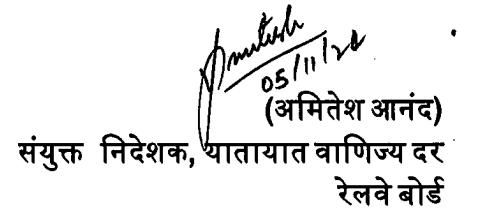 Amitesh
05/11/20
(अमितेश आनंद)
संयुक्त निदेशक, यातायात वाणिज्य दर
रेलवे बोर्ड